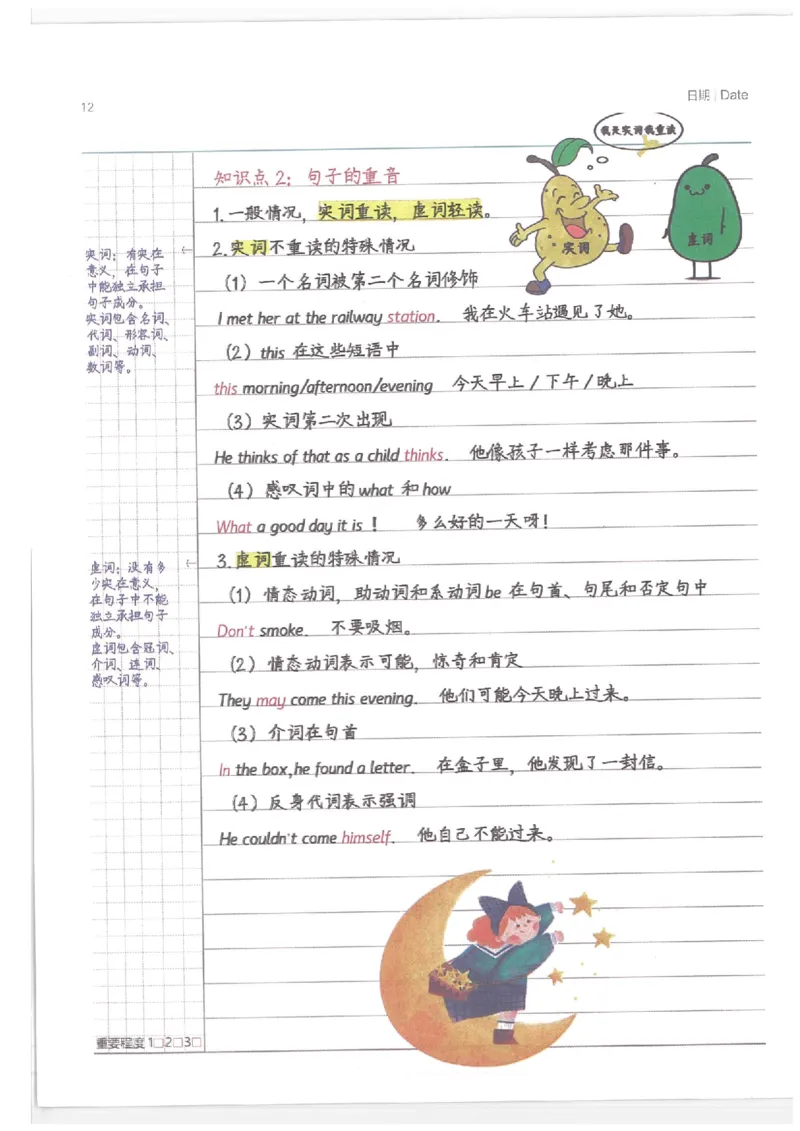 12
日期 | Date
我是实词我重读
实词
虚词
知识点 2：句子的重音
1. 一般情况，实词重读，虚词轻读。
2. 实词不重读的特殊情况
（1）一个名词被第二个名词修饰
I met her at the railway station. 我在火车站遇见了她。
（2）this 在这些短语中
this morning/afternoon/evening 今天早上/下午/晚上
（3）实词第二次出现
He thinks of that as a child thinks. 他像孩子一样考虑那件事。
（4）感叹词中的 what 和 how
What a good day it is！ 多么好的一天呀！
3. 虚词重读的特殊情况
（1）情态动词，助动词和系动词 be 在句首、句尾和否定句中
Don't smoke. 不要吸烟。
（2）情态动词表示可能，惊奇和肯定
They may come this evening. 他们可能今天晚上过来。
（3）介词在句首
In the box,he found a letter. 在盒子里，他发现了一封信。
（4）反身代词表示强调
He couldn't come himself. 他自己不能过来。
实词：有实在
意义，在句子
中能独立承担
句子成分。
实词包含名词、
代词、形容词、
副词、动词、
数词等。
虚词：没有多
少实在意义，
在句子中不能
独立承担句子
成分。
虚词包含冠词、
介词、连词、
感叹词等。
重要程度 1□2□3□